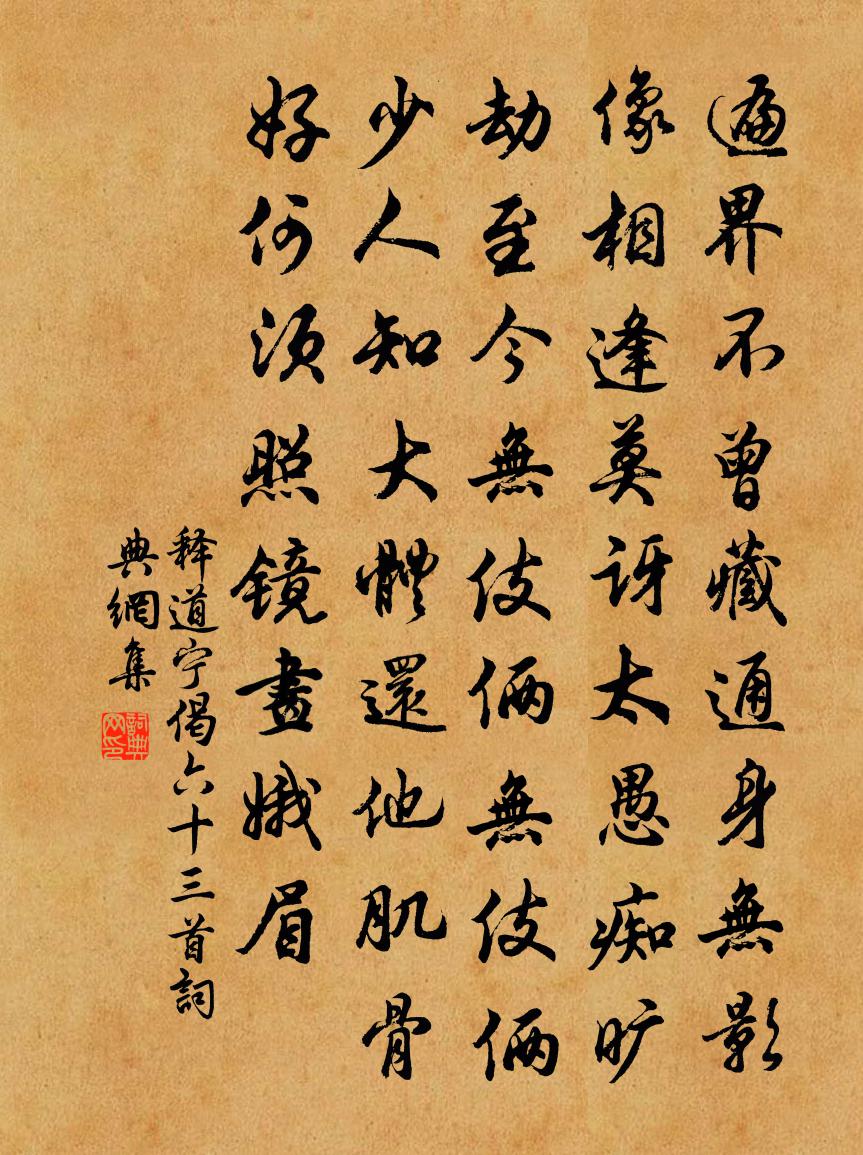 遍界不曾藏通身無影
像相逢莫訝太愚痴旷
劫至今無伎倆無伎倆
少人知大體還他肌骨
好何須照镜畫娥眉
释道宁偈六十三首詞
典網集
詞典网印